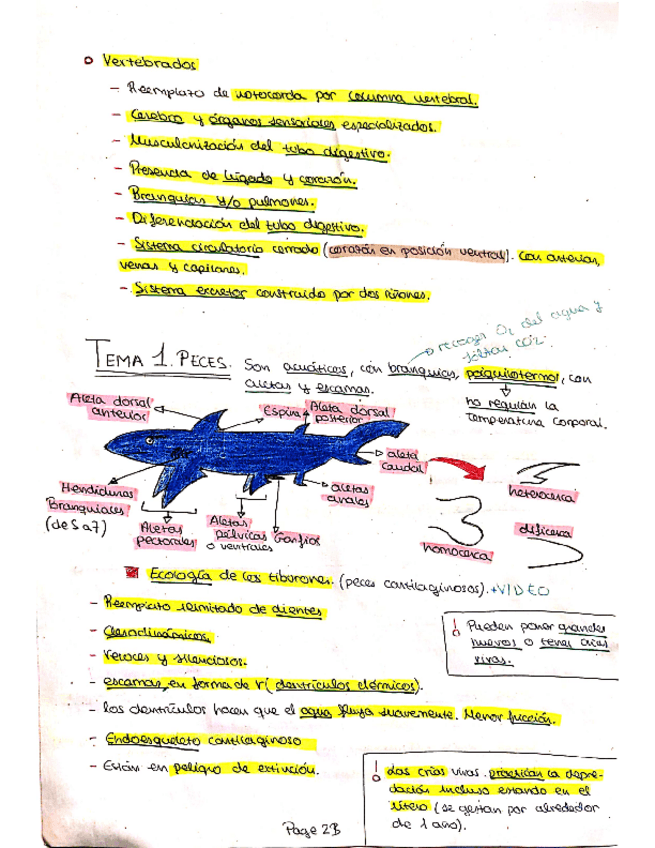 Vertebrados
- Reemplazo de notocorda por columna vertebral.
- Cerebro y órganos sensoriales especializados.
- Muscularización del tubo digestivo.
- Presencia de hígado y corazón.
- Branquias y/o pulmones.
- Diferenciación del tubo digestivo.
- Sistema circulatorio cerrado (corazón en posición ventral). Con arterias,
venas y capilares.
- Sistema excretor construido por dos riñones.
recoger O2 del agua y
soltar CO2.
TEMA 1. PECES. Son acuáticos, con branquias, poiquilotermos, con
aletas y escamas.
no regulan la
temperatura corporal.
Aleta dorsal
anterior
Espina
Aleta dorsal
posterior
aleta
caudal
aletas
anales
Hendiduras
Branquiales
(de 5 a 7)
Aletas
pectorales
Aletas
pélvicas
o ventrales
heterocerca
homocerca
dificerca
Ecología de los tiburones. (peces cartilaginosos). +VIDEO
- Reemplazo ilimitado de dientes
- Veloces y silenciosos.
- escamas en forma de V (dentículos dérmicos).
- los dentrículos hacen que el agua fluya suavemente. Menor fricción.
- Endoesqueleto cartilaginoso
- Están en peligro de extinción.
! Pueden poner grandes
huevos o tener crías
vivas.
! Las crías vivas practican la depre-
dación incluso estando en el
útero (se gestan por alrededor
de 1 año).
Page 2B